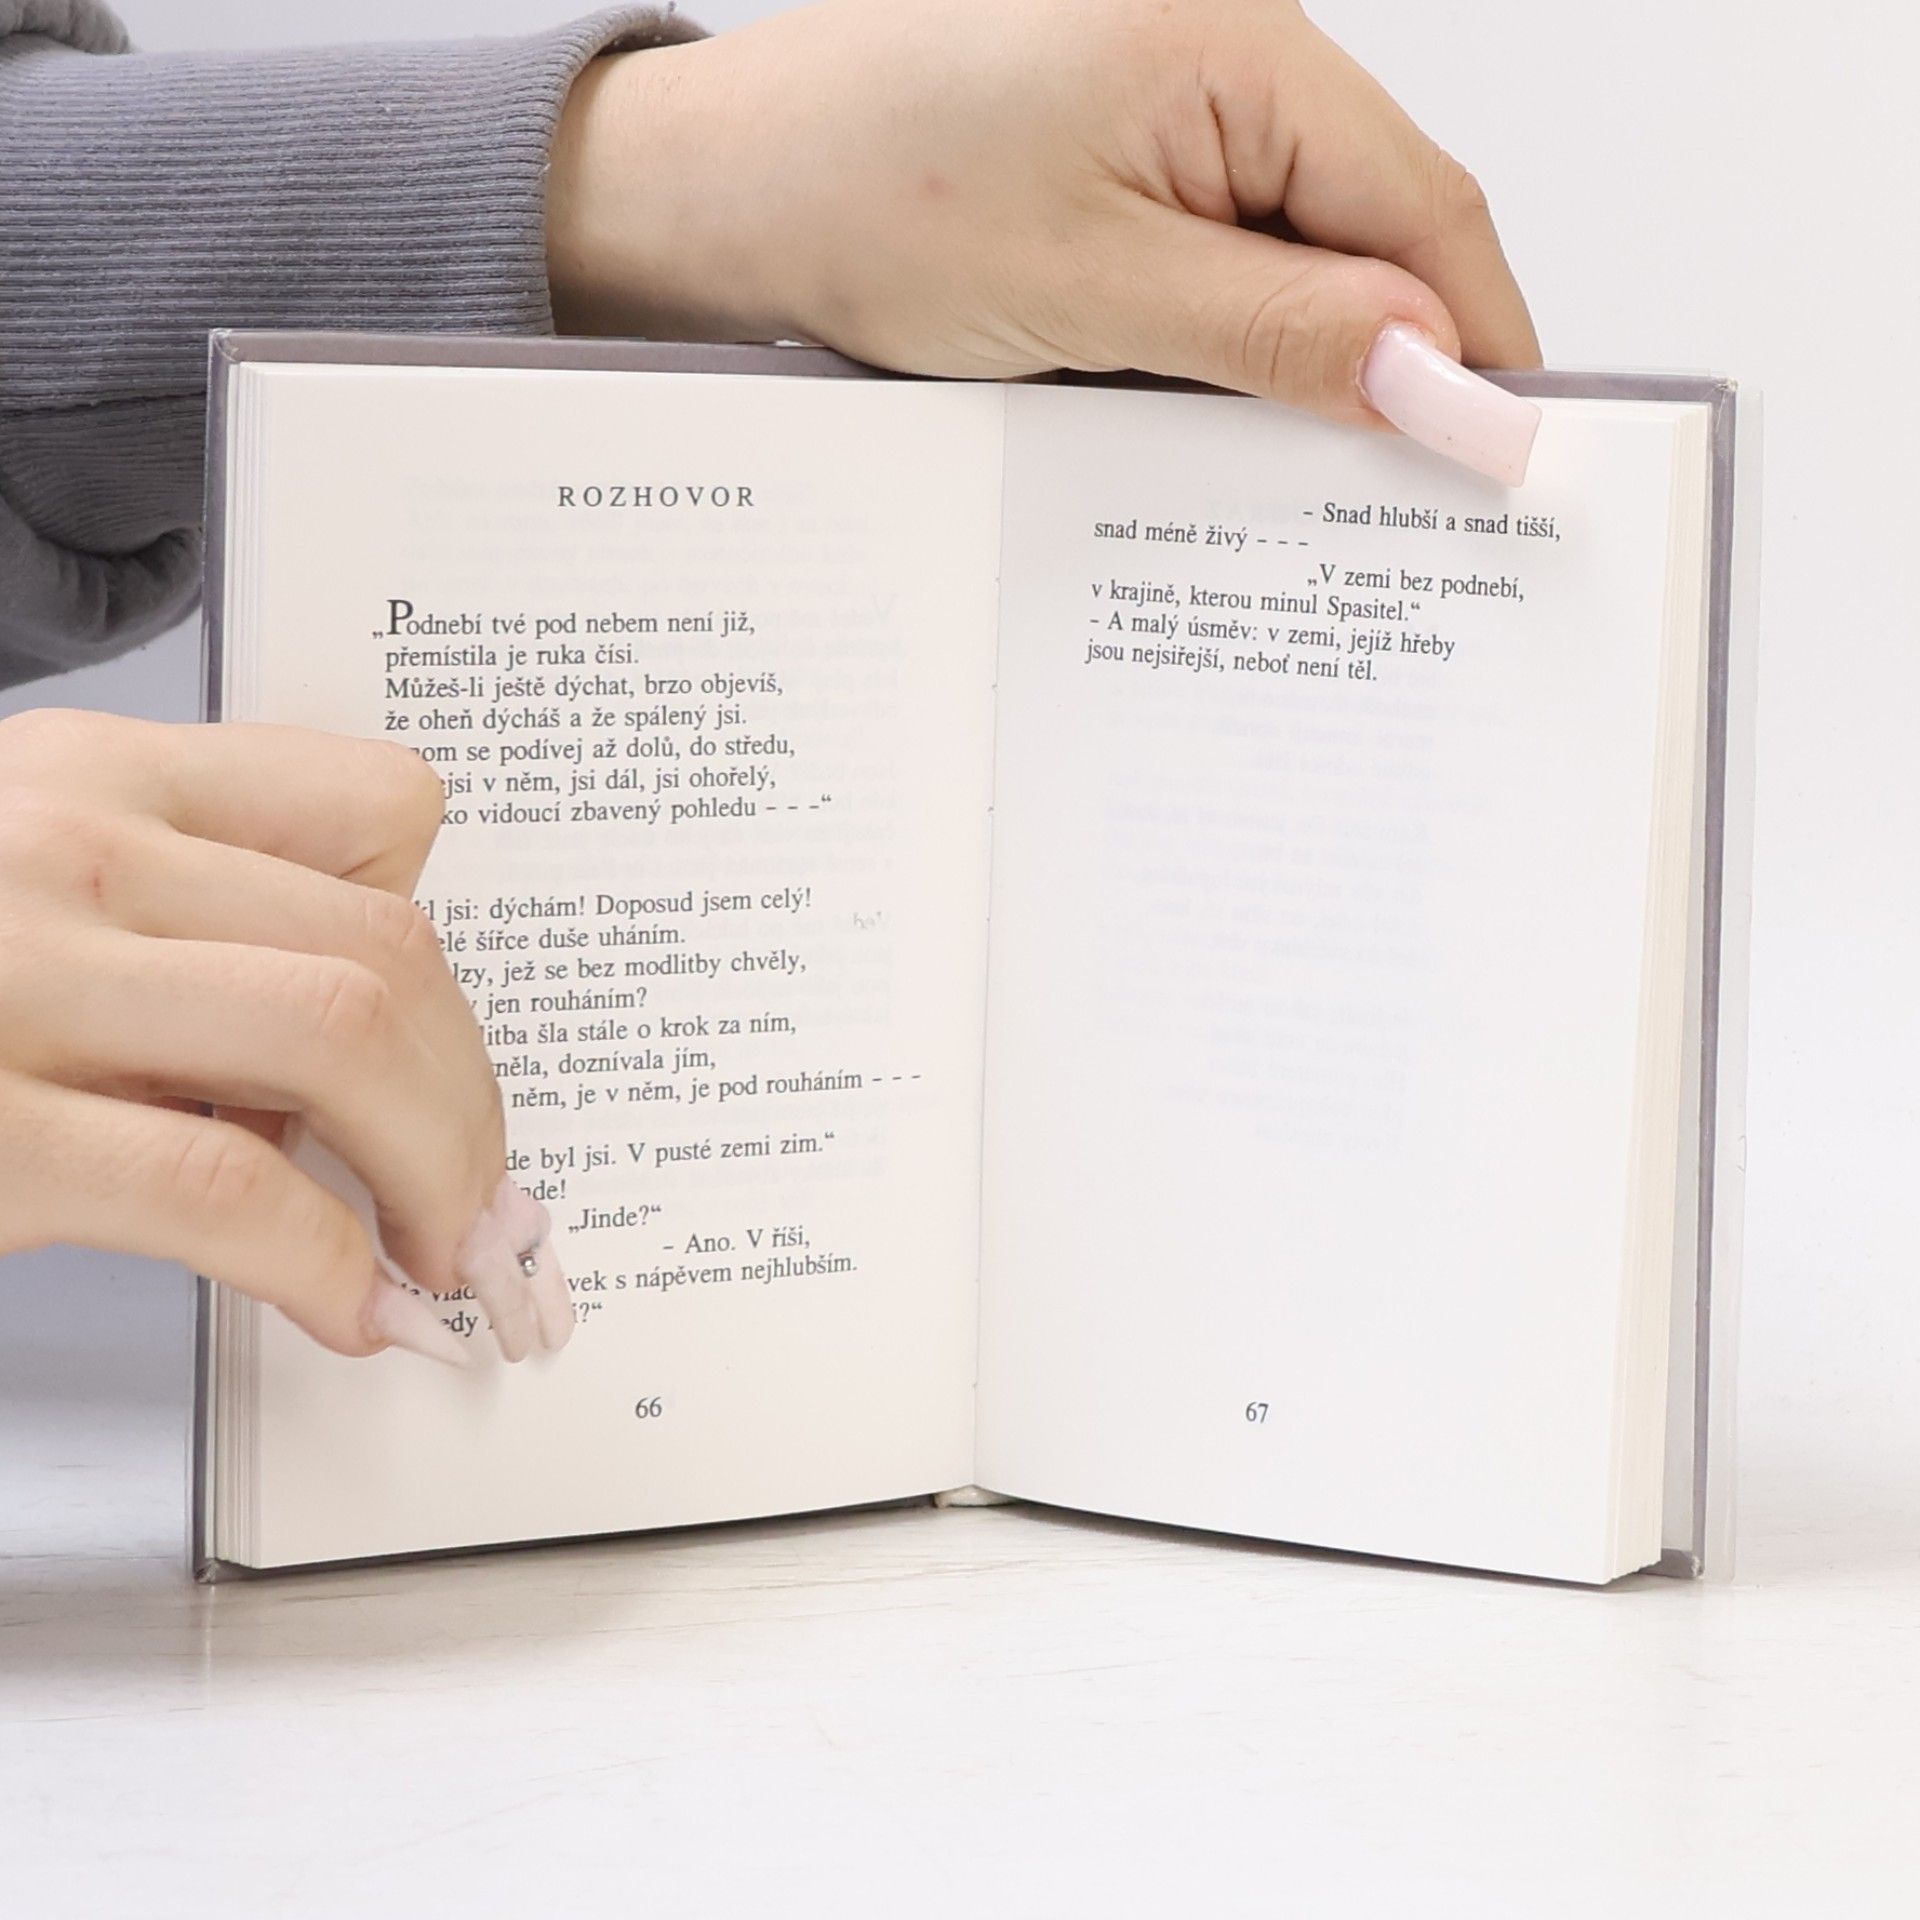 ROZHOVOR
„Podnebí tvé pod nebem není již,
přemístila je ruka čísi.
Můžeš-li ještě dýchat, brzo objevíš,
že oheň dýcháš a že spálený jsi.
se podívej až dolů, do středu,
v něm, jsi dál, jsi ohořelý,
vidoucí zbavený pohledu - - -“
jsi: dýchám! Doposud jsem celý!
šířce duše uháním.
jež se bez modlitby chvěly,
jen rouháním?
šla stále o krok za ním,
doznívala jím,
něm, je v něm, je pod rouháním - - -
byl jsi. V pusté zemi zim.“
„Jinde?“
- Ano. V říši,
s nápěvem nejhlubším.
66
- Snad hlubší a snad tišší,
snad méně živý - - -
„V zemi bez podnebí,
v krajině, kterou minul Spasitel.“
- A malý úsměv: v zemi, jejíž hřeby
jsou nejsiřejší, neboť není těl.
67